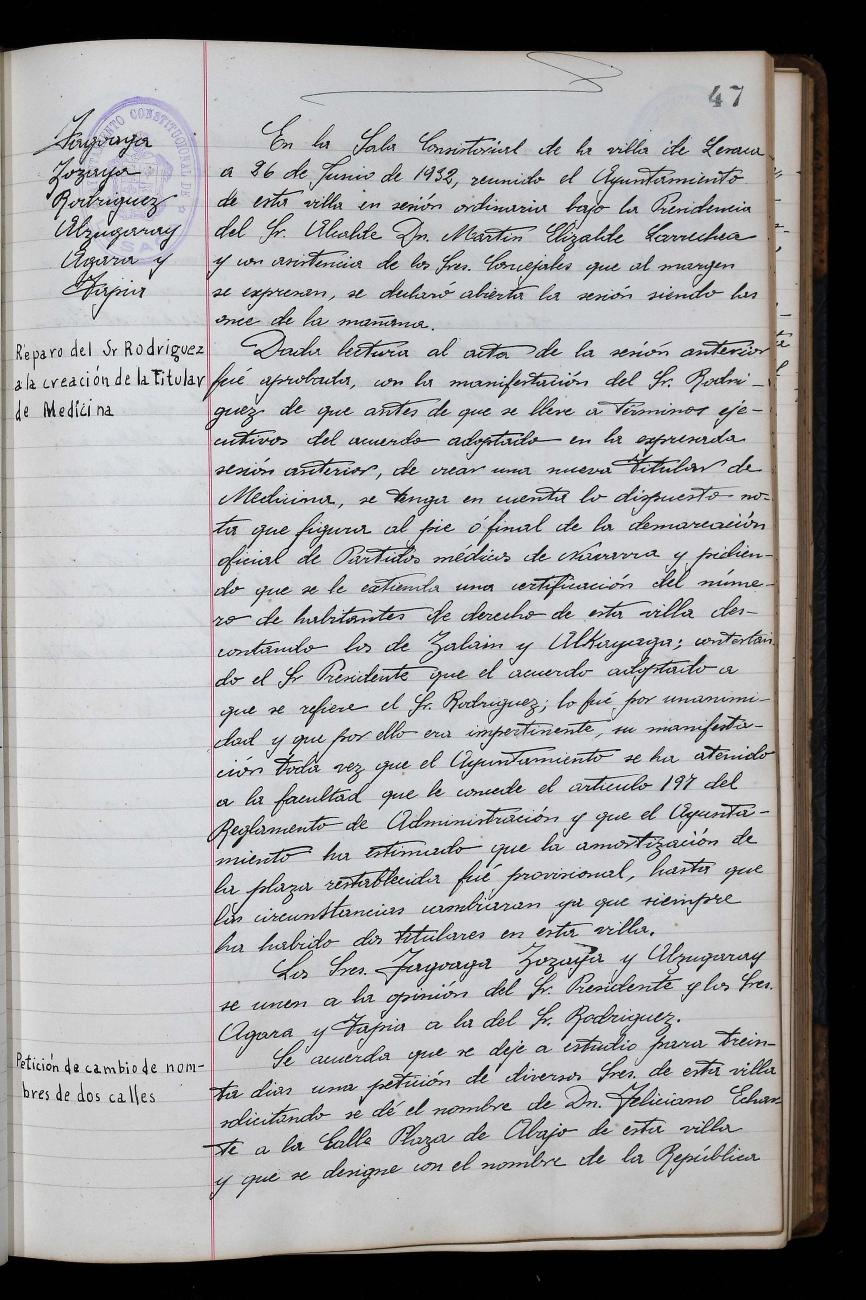 47
Jagoaga
Zozaya
Rodriguez
Alzugaray
Agara y
Tapia
En la Sala Consistorial de la villa de Lesaca
a 26 de Junio de 1932, reunido el Ayuntamiento
de esta villa en sesión ordinaria bajo la Presidencia
del Sr. Alcalde Dn. Martin Elizalde Larrechea
y con asistencia de los Sres. Concejales que al margen
se expresan, se declaró abierta la sesión siendo las
once de la mañana.
Reparo del Sr Rodriguez
a la creación de la Titular
de Medicina
Dada lectura al acta de la sesión anterior
fué aprobada, con la manifestación del Sr. Rodri-
guez de que antes de que se lleve a términos eje-
cutivos del acuerdo adoptado en la expresada
sesión anterior, de crear una nueva Titular de
Medicina, se tenga en cuenta lo dispuesto no-
ta que figura al pie ó final de la demarcación
oficial de Partidos médicos de Navarra y pidien-
do que se le extienda una certificación del núme-
ro de habitantes de derecho de esta villa des-
contando los de Zalain y Alkayaga; contestan
do el Sr Presidente que el acuerdo adoptado a
que se refiere el Sr. Rodriguez; lo fué por unanimi-
dad y que por ello era impertinente, su manifesta-
ción toda vez que el Ayuntamiento se ha atenido
a la facultad que le concede el articulo 197 del
Reglamento de Administración y que el Ayunta-
miento ha estimado que la amortización de
la plaza restablecida fué provisional, hasta que
las circunstancias cambiaran ya que siempre
ha habido dos titulares en esta villa.
Los Sres. Jagoaga Zozaya y Alzugaray
se unen a la opinión del Sr. Presidente y los Sres.
Agara y Tapia a la del Sr. Rodriguez.
Petición de cambio de nom-
bres de dos calles
Se acuerda que se deje a estudio para trein-
ta dias una petición de diversos Sres. de esta villa
solicitando se dé el nombre de Dn. Feliciano Echar
te a la Calle Plaza de Abajo de esta villa
y que se designe con el nombre de la República